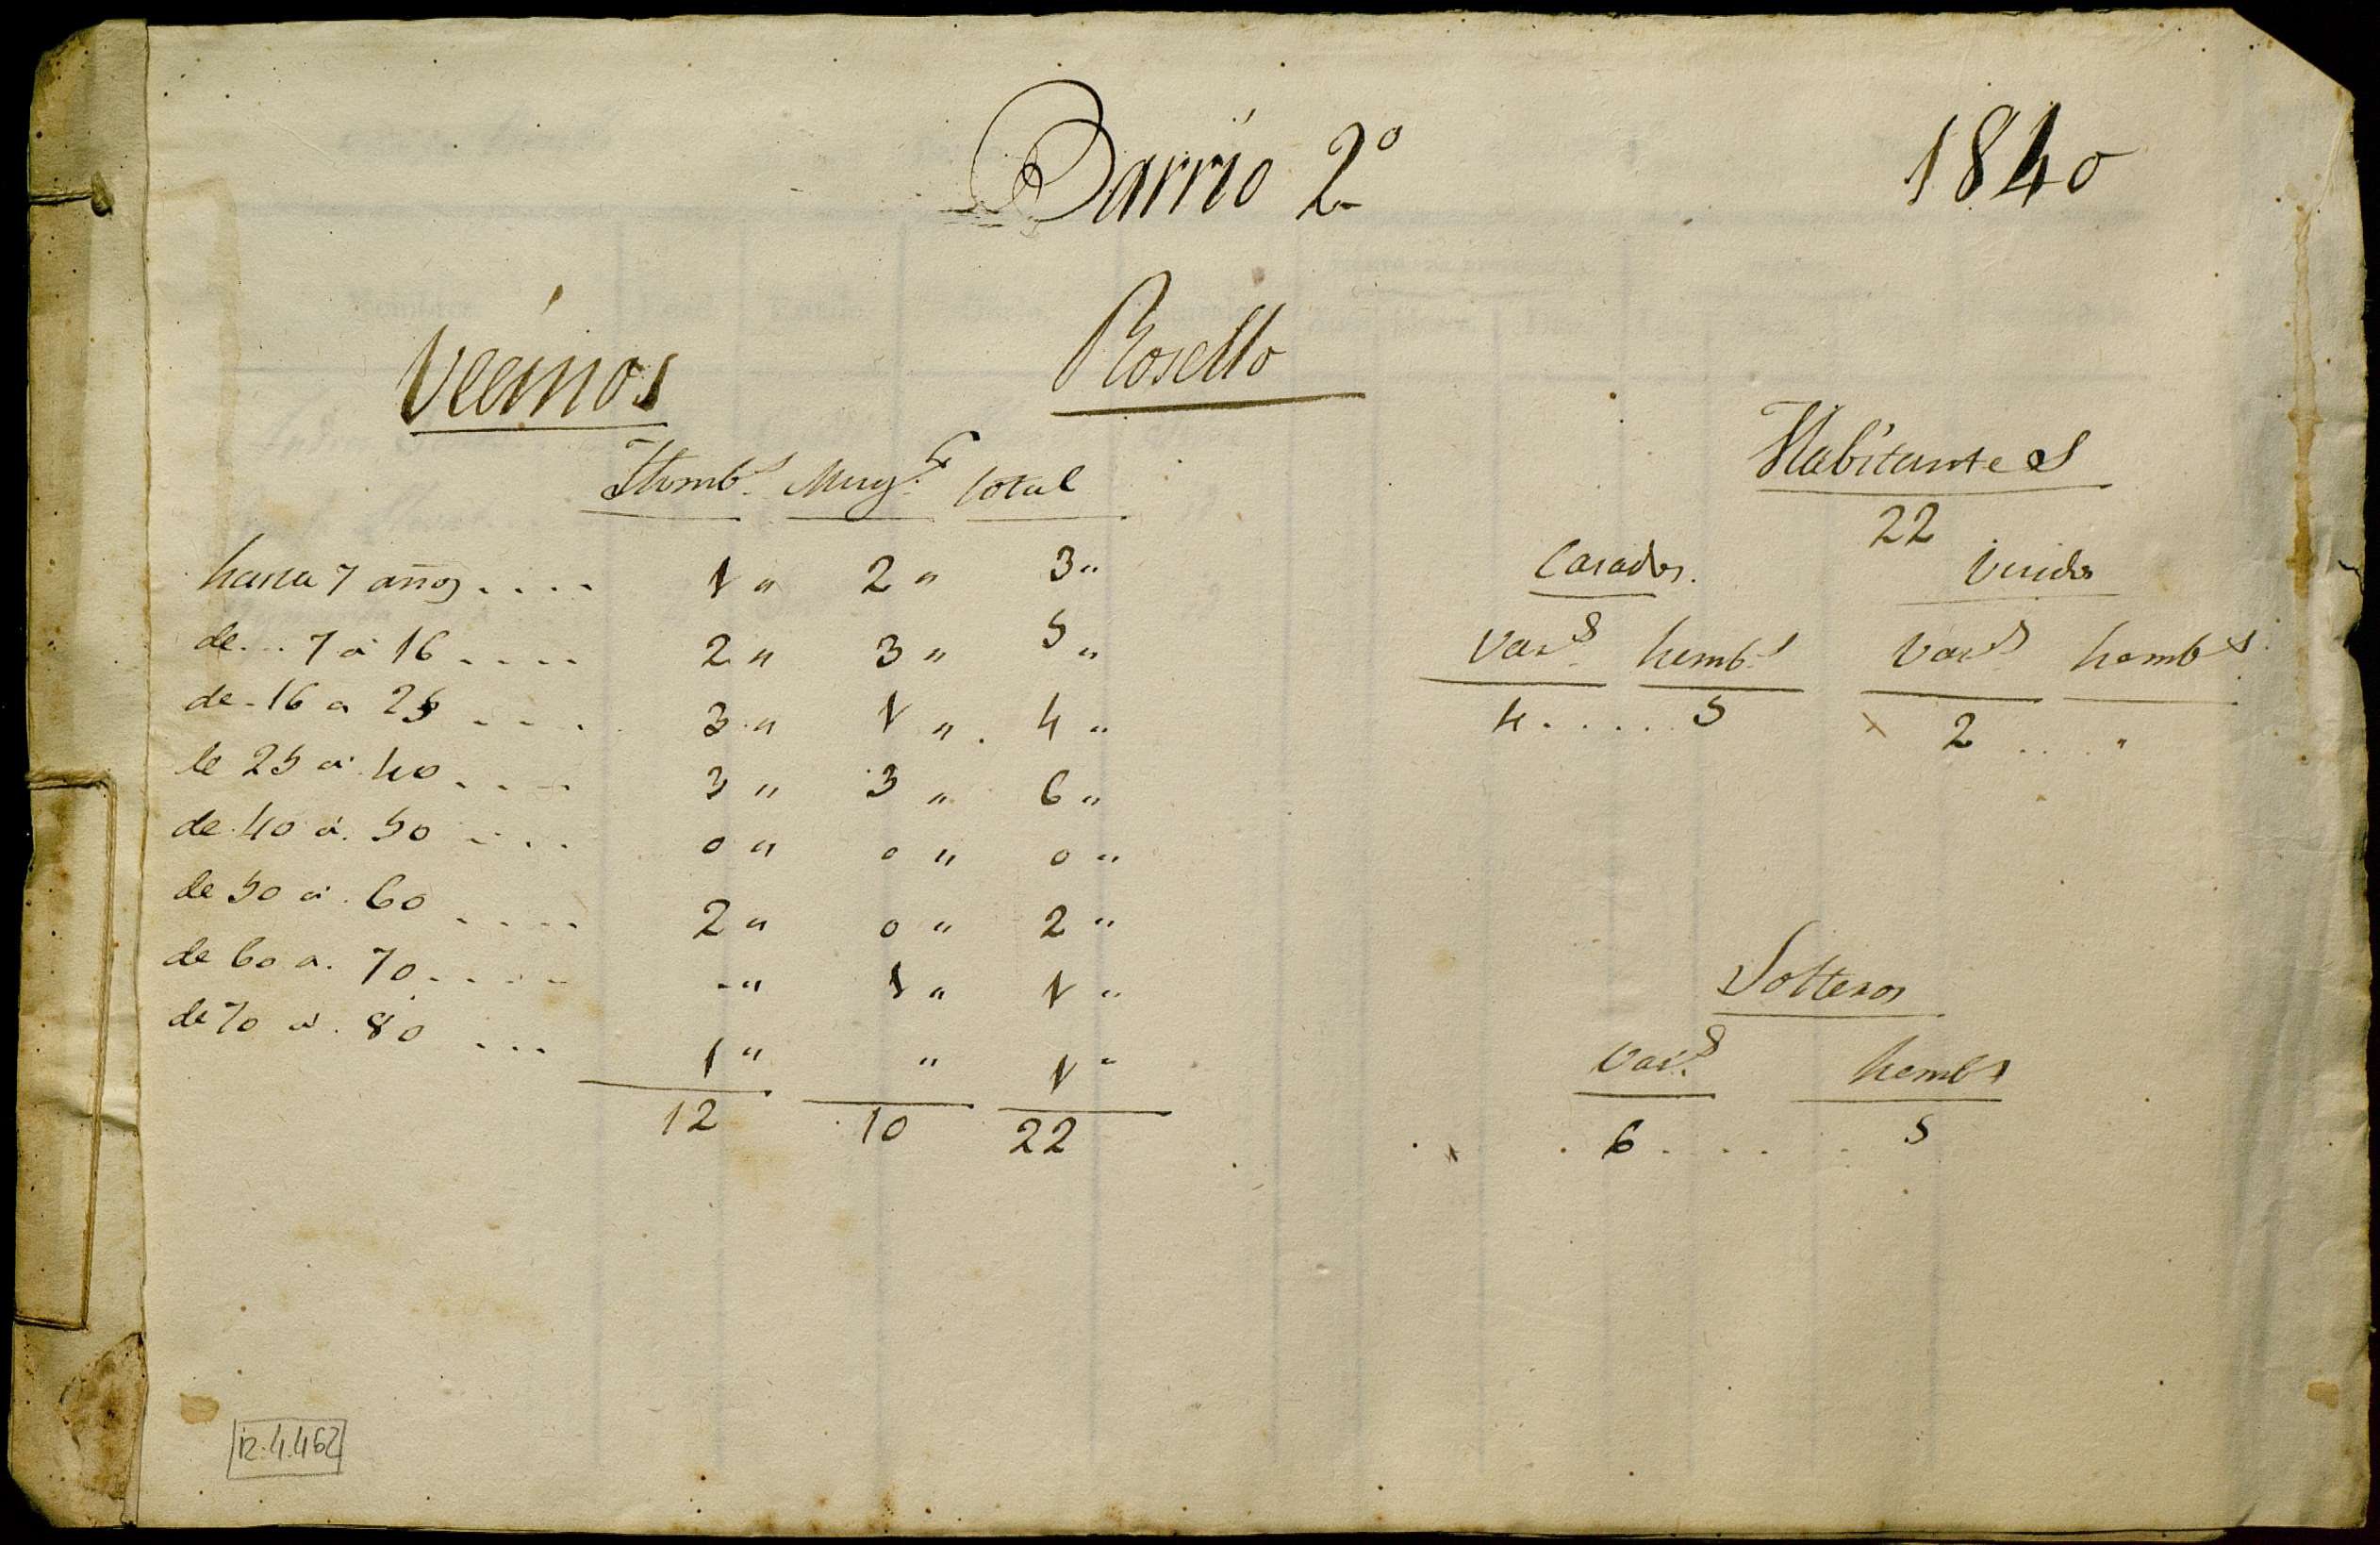 Barrio 2º
1840
Vecinos
Rosello
Homb.s Mug.s total
hasta 7 años .... 1 " 2 " 3 "
de... 7 á 16 .... 2 " 3 " 5 "
de - 16 a 25 .... 3 " 1 " . 4 "
de 25 á 40 .... 3 " 3 " 6 "
de 40 á 50 .... 0 " 0 " 0 "
de 50 á 60 .... 2 " 0 " 2 "
de 60 a 70 .... - " 1 " 1 "
de 70 á 80 ... 1 " " 1 "
12 10 22
Habitantes
22
Casados. Viudos
Var.s hemb.s Var.s hemb.s
4 .... 5 2 .... "
Solteros
Var.s hemb.s
6 ..... 5
12.4.462